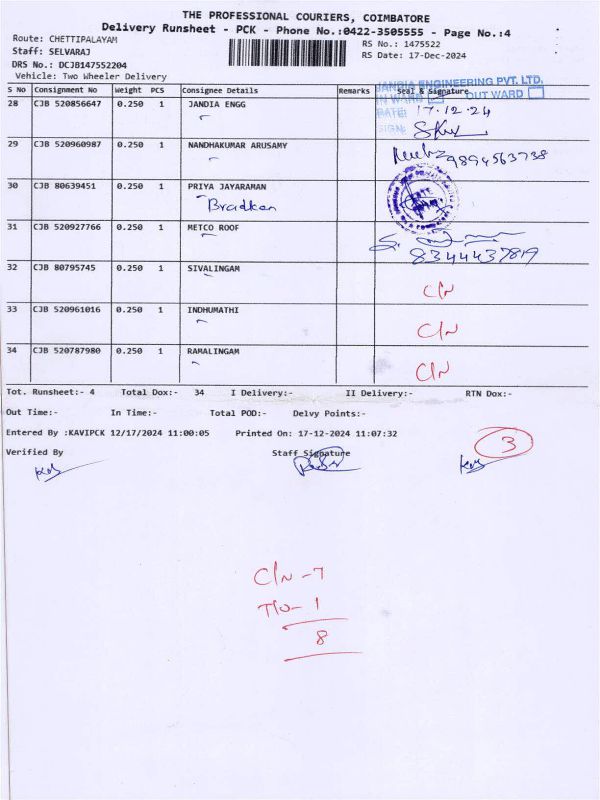 THE PROFESSIONAL COURIERS, COIMBATORE
Delivery Runsheet - PCK - Phone No.:0422-3505555 - Page No.:4
Route: CHETTIPALAYAM
RS No.: 1475522
Staff: SELVARAJ
RS Date: 17-Dec-2024
DRS No.: DCJB147552204
Vehicle: Two Wheeler Delivery
JANDIA ENGINEERING PVT. LTD.
IN WARD OUT WARD
S No Consignment No Weight PCS Consignee Details Remarks Seal & Signature
28 CJB 520856647 0.250 1 JANDIA ENGG
DATE: 17.12.24
SIGN:
29 CJB 520960987 0.250 1 NANDHAKUMAR ARUSAMY
9894563738
30 CJB 80639451 0.250 1 PRIYA JAYARAMAN
Bradken
31 CJB 520927766 0.250 1 METCO ROOF
8344437819
32 CJB 80795745 0.250 1 SIVALINGAM
C/N
33 CJB 520961016 0.250 1 INDHUMATHI
C/N
34 CJB 520787980 0.250 1 RAMALINGAM
C/N
Tot. Runsheet:- 4 Total Dox:- 34 I Delivery:- II Delivery:- RTN Dox:-
Out Time:- In Time:- Total POD:- Delvy Points:-
Entered By :KAVIPCK 12/17/2024 11:00:05 Printed On: 17-12-2024 11:07:32
3
Verified By Staff Signature
C/N - 7
T/O - 1
8